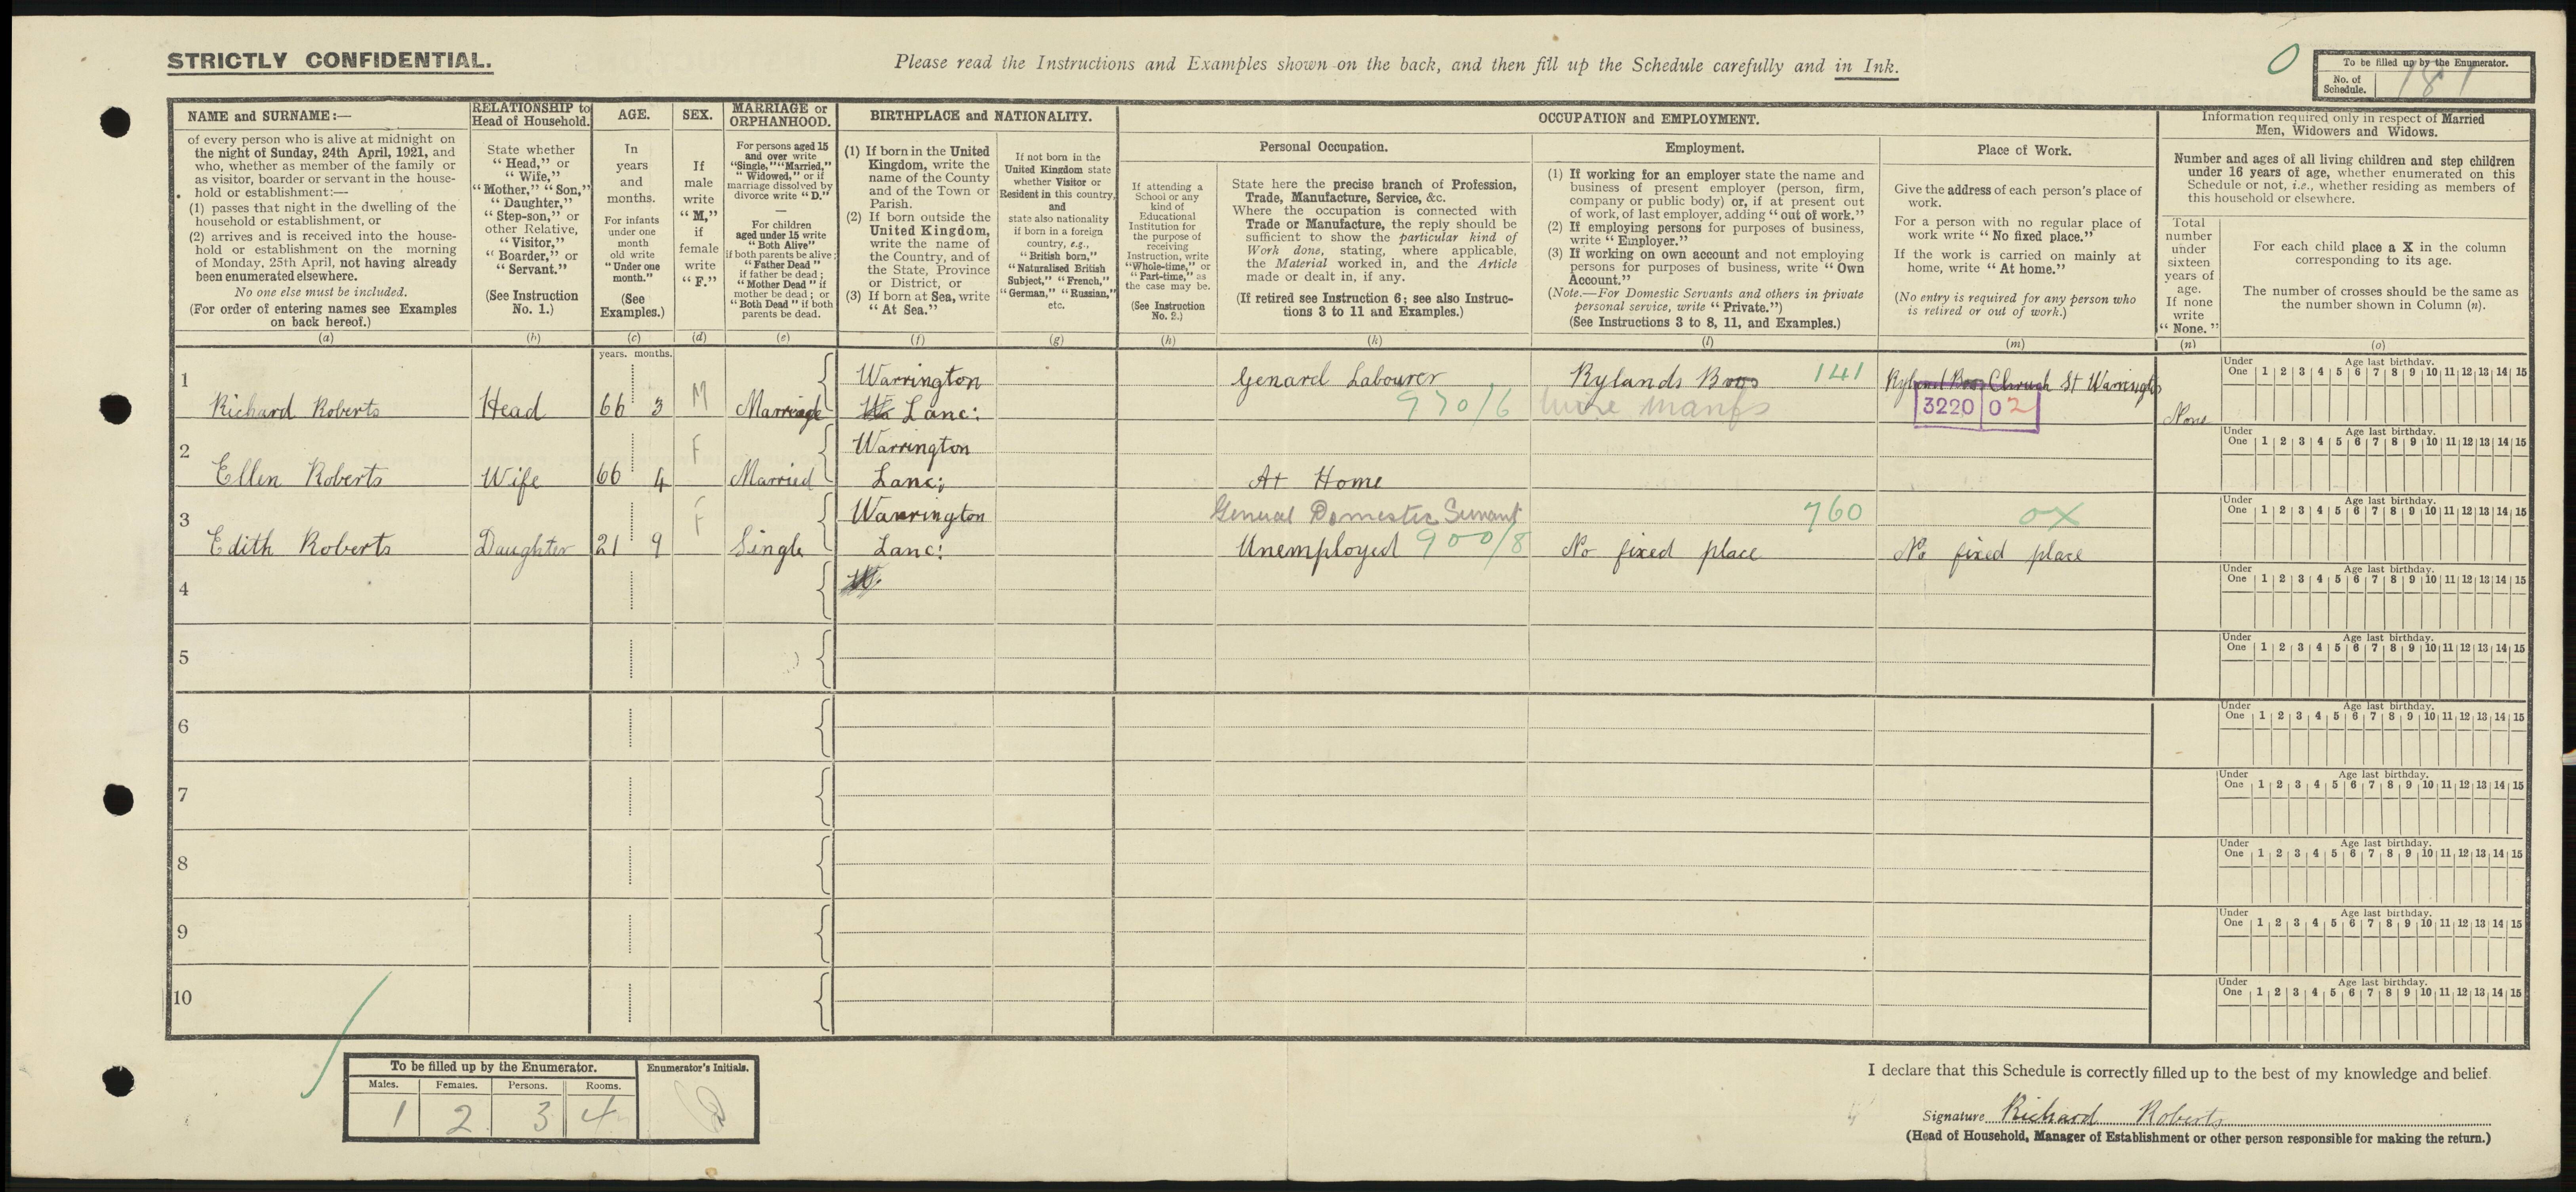 STRICTLY CONFIDENTIAL.
Please read the Instructions and Examples shown on the back, and then fill up the Schedule carefully and in Ink.
0
To be filled up by the Enumerator.
No. of Schedule. 181
NAME and SURNAME:—
of every person who is alive at midnight on
the night of Sunday, 24th April, 1921, and
who, whether as member of the family or
as visitor, boarder or servant in the house-
hold or establishment:—
(1) passes that night in the dwelling of the
household or establishment, or
(2) arrives and is received into the house-
hold or establishment on the morning
of Monday, 25th April, not having already
been enumerated elsewhere.
No one else must be included.
(For order of entering names see Examples
on back hereof.)
(a)
RELATIONSHIP to
Head of Household.
State whether
"Head," or
"Wife,"
"Mother," "Son,"
"Daughter,"
"Step-son," or
other Relative,
"Visitor,"
"Boarder," or
"Servant."
(See Instruction
No. 1.)
(b)
AGE.
In
years
and
months.
For infants
under one
month
old write
"Under one
month."
(See
Examples.)
(c)
SEX.
If
male
write
"M,"
if
female
write
"F."
(d)
MARRIAGE or
ORPHANHOOD.
For persons aged 15
and over write
"Single," "Married,"
"Widowed," or if
marriage dissolved by
divorce write "D."
—
For children
aged under 15 write
"Both Alive"
if both parents be alive;
"Father Dead"
if father be dead;
"Mother Dead" if
mother be dead; or
"Both Dead" if both
parents be dead.
(e)
BIRTHPLACE and NATIONALITY.
(1) If born in the United
Kingdom, write the
name of the County
and of the Town or
Parish.
(2) If born outside the
United Kingdom,
write the name of
the Country, and of
the State, Province
or District, or
(3) If born at Sea, write
"At Sea."
(f)
If not born in the
United Kingdom state
whether Visitor or
Resident in this country,
and
state also nationality
if born in a foreign
country, e.g.,
"British born,"
"Naturalised British
Subject," "French,"
"German," "Russian,"
etc.
(g)
OCCUPATION and EMPLOYMENT.
If attending a
School or any
kind of
Educational
Institution for
the purpose of
receiving
Instruction, write
"Whole-time," or
"Part-time," as
the case may be.
(See Instruction
No. 2.)
(h)
Personal Occupation.
State here the precise branch of Profession,
Trade, Manufacture, Service, &c.
Where the occupation is connected with
Trade or Manufacture, the reply should be
sufficient to show the particular kind of
Work done, stating, where applicable,
the Material worked in, and the Article
made or dealt in, if any.
(If retired see Instruction 6; see also Instruc-
tions 3 to 11 and Examples.)
(k)
Employment.
(1) If working for an employer state the name and
business of present employer (person, firm,
company or public body) or, if at present out
of work, of last employer, adding "out of work."
(2) If employing persons for purposes of business,
write "Employer."
(3) If working on own account and not employing
persons for purposes of business, write "Own
Account."
(Note.—For Domestic Servants and others in private
personal service, write "Private.")
(See Instructions 3 to 8, 11, and Examples.)
(l)
Place of Work.
Give the address of each person's place of
work.
For a person with no regular place of
work write "No fixed place."
If the work is carried on mainly at
home, write "At home."
(No entry is required for any person who
is retired or out of work.)
(m)
Information required only in respect of Married
Men, Widowers and Widows.
Number and ages of all living children and step children
under 16 years of age, whether enumerated on this
Schedule or not, i.e., whether residing as members of
this household or elsewhere.
Total
number
under
sixteen
years of
age.
If none
write
"None."
(n)
For each child place a X in the column
corresponding to its age.
The number of crosses should be the same as
the number shown in Column (n).
(o)
years. months.
1 Richard Roberts Head 66 3 M Marriage Warrington Lanc: Genard Labourer 970/6 Rylands Bros 141 Wire Manfs Ryland Bros Church St Warrington 3220 02 None
Under One Age last birthday. 1 2 3 4 5 6 7 8 9 10 11 12 13 14 15
2 Ellen Roberts Wife 66 4 F Married Warrington Lanc: At Home
Under One Age last birthday. 1 2 3 4 5 6 7 8 9 10 11 12 13 14 15
3 Edith Roberts Daughter 21 9 F Single Warrington Lanc: General Domestic Servant Unemployed 900/8 760 No fixed place OX No fixed place
Under One Age last birthday. 1 2 3 4 5 6 7 8 9 10 11 12 13 14 15
4
Under One Age last birthday. 1 2 3 4 5 6 7 8 9 10 11 12 13 14 15
5
Under One Age last birthday. 1 2 3 4 5 6 7 8 9 10 11 12 13 14 15
6
Under One Age last birthday. 1 2 3 4 5 6 7 8 9 10 11 12 13 14 15
7
Under One Age last birthday. 1 2 3 4 5 6 7 8 9 10 11 12 13 14 15
8
Under One Age last birthday. 1 2 3 4 5 6 7 8 9 10 11 12 13 14 15
9
Under One Age last birthday. 1 2 3 4 5 6 7 8 9 10 11 12 13 14 15
10
Under One Age last birthday. 1 2 3 4 5 6 7 8 9 10 11 12 13 14 15
To be filled up by the Enumerator.
Males. Females. Persons. Rooms.
1 2 3 4
Enumerator's Initials.
I declare that this Schedule is correctly filled up to the best of my knowledge and belief.
Signature Richard Roberts
(Head of Household, Manager of Establishment or other person responsible for making the return.)